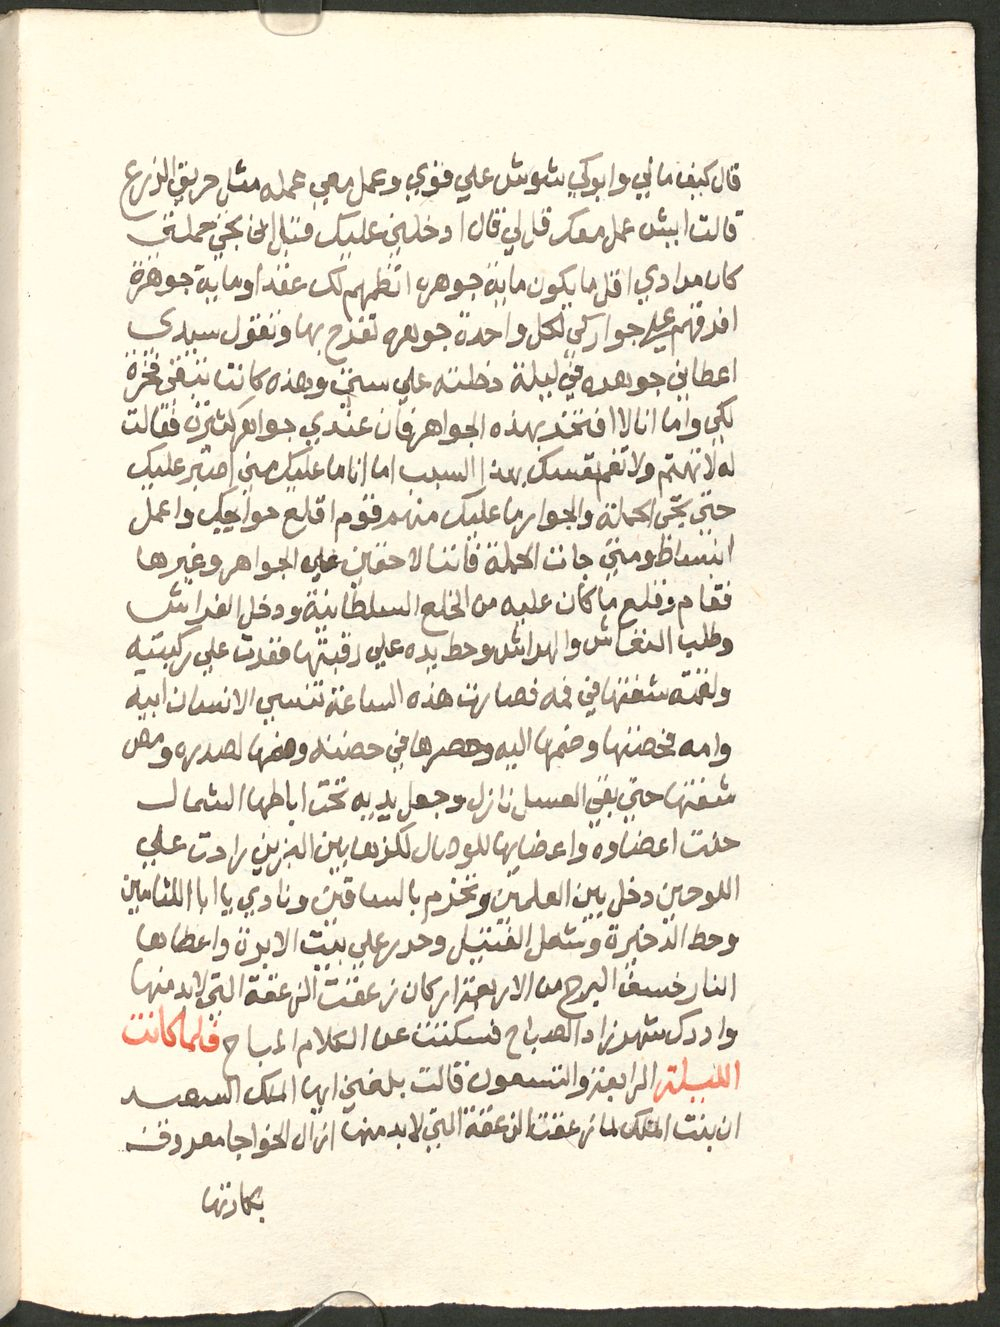 قال كيف مابي وابوكي شوش علي فوي وعمل معي عمله مثل حريق الزرع
قالت ايش عمل معك قل لي قال ادخلني عليك قبل ان تجي حملتي
كان مرادي اقل ما يكون ماية جوهره انظمهم لك عقدا وماية جوهرة
افرقهم علي جواركي لكل واحدة جوهره تفرح بها وتقول سيدي
اعطاني جوهره في ليلة دخلته علي ستي وهذه كانت تبقي فخرة
لكي واما انا لا افتخر بهذه الجواهر فان عندي جواهر كثيرة فقالت
له لا تهتم ولا تغم نفسك بهذا السبب اما انا ما عليك مني اصبر عليك
حتي تجي الحملة والجوار ما عليك منهم فقوم اقلع حوايجك واعمل
انبساط ومتي جات الحملة فاننا لاحقين علي الجواهر وغيرها
فقام وقلع ما كان عليه من الخلع السلطانية ودخل الفراش
وطلب النغاش والهراش وحط يده علي رقبتها فقعدت علي ركبته
ولقمته شفتها في فمه فصارت هذه الساعة تنسي الانسان ابيه
وامه فحضنها وضمها اليه وحصرها في حضنه وضمها لصدره ومص
شفتها حتي بقي العسل نازل وجعل يديه تحت اباطها الشمال
حنت اعضاوه واعضايها للوصال لكزها بين البزين رادت علي
اللوحين دخل بين العلمين وتحزم بالساقين ونادي يا ابا اللثامين
وحط الذخيرة وشعل الفتيل وحرر علي بيت الابرة واعطاها
النار خسف البرج من الاربعة اركان زعقت الزعقة التي لا بد منها
وادرك شهرزاد الصباح فسكتت عن الكلام المباح فلما كانت
الليلة الرابعة والتسعون قالت بلغني ايها الملك السعيد
ان بنت الملك لما زعقت الزعقة التي لا بد منها ازال الخواجا معروف
بكارتها